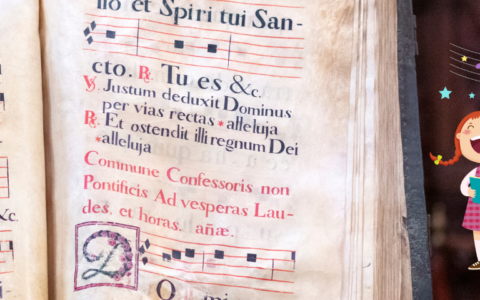 et Spiri tui San-
cto. ℟. Tu es &c.
℣ Justum deduxit Dominus
per vias rectas * alleluja
℟. Et ostendit illi regnum Dei
* alleluja
Commune Confessoris non
Pontificis Ad vesperas Lau-
des. et horas. añæ.
D
O
&c.